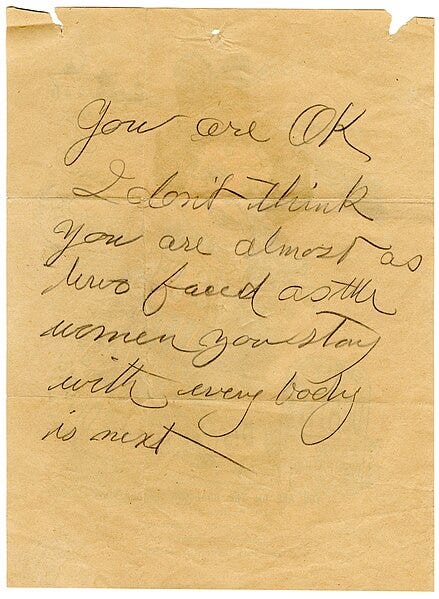 You are OK
I don't think
you are almost as
two faced as the
women you stay
with every body
is next